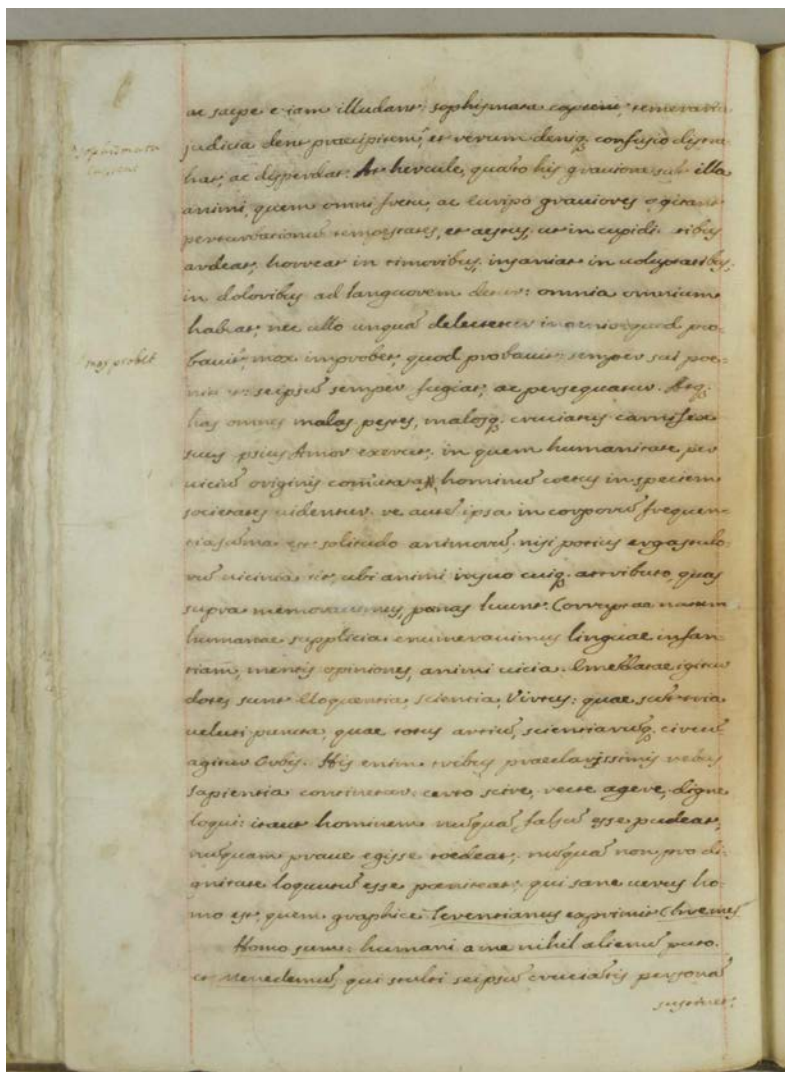 ac saepe etiam illudant: sophismata captent, temeraria
judicia dent praecipitem, et verum deniq. confusio distra-
hat, ac disperdat: At hercule, quāto his graviora sūt illa
animi, quem omni fretu, ac Euripo graviores agitant
perturbationū tempestates, et aestus, ut in cupidi tibus
ardeat, horreat in timoribus, insaniat in voluptatibus,
in doloribus ad languorem: omnia omnium
habeat, nec ullo unquā delectetur quod pro-
bavit, mox improbet, quod probavit: semper sui poe-
niteat: seipsū semper fugiat, ac persequatur. Atq.
has omnes malas pestes, malosq. cruciatus carnifex
suus ipsius Amor exercet: in quem humanitate per
viciū originis com̄utata, hominū coetus in speciem
societates videntur. re autē ipsa in corporū frequen-
tia sūma est solitudo animorū. nisi potius ergastulo-
rū vicinia sit, ubi animi in suo cuiq. attributo, quas
supra memoravimus, pœnas luunt. Corruptae naturae
humanae supplicia enumeravimus linguae infan-
tiam, mentis opiniones, animi vicia. Emeblatae igitur
dotes sunt Eloquentia, scientia, Virtus: quae sūt tria
veluti puncta, quae totus artiū, scientiarūq. circū
agitur Orbis. His enim tribus praeclarissimis rebus
sapientia continetur: certo scire, recte agere, digne
loqui: itaut hominem nusquā falsū esse pudeat,
nusquam prave egisse toedeat; nusquā non pro di-
gnitate loquutū esse pœniteat: qui sane verus ho-
mo est, quem graphice Terentianus exprimit Chremes
Homo sum: humani a me nihil alienū puto.
et Menedemū, qui stulti seipsū cruciatis personā
sustinet:
Sophismata
mox probet